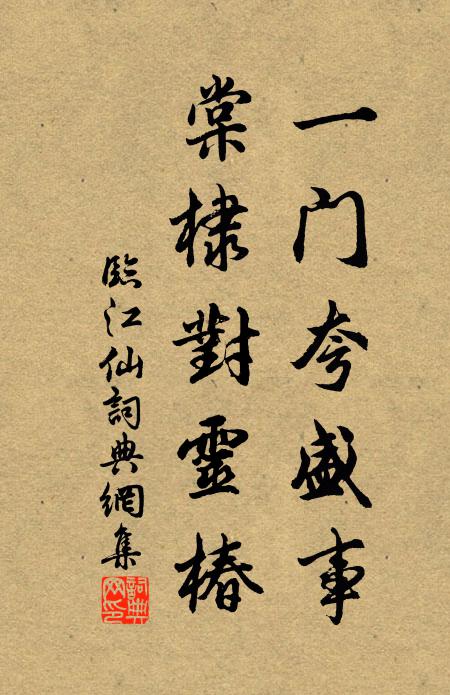 一门夸盛事
棠棣對靈椿
臨江仙詞典網集
詞典网印